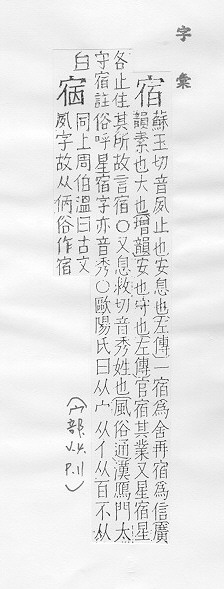 字彙
宿
蘇玉切音夙止也安息也左傳一宿爲舍再宿爲信廣
韻素也大也增韻安也守也左傳官宿其業又星宿星
各止住其所故言宿○又息救切音秀姓也風俗通漢鴈門太
守宿註俗呼星宿字亦音秀○歐陽氏曰从宀从亻从百不从
白
㝛
同上周伯溫曰古文
夙字故从㑉俗作宿
(宀部 V.4. P.11)